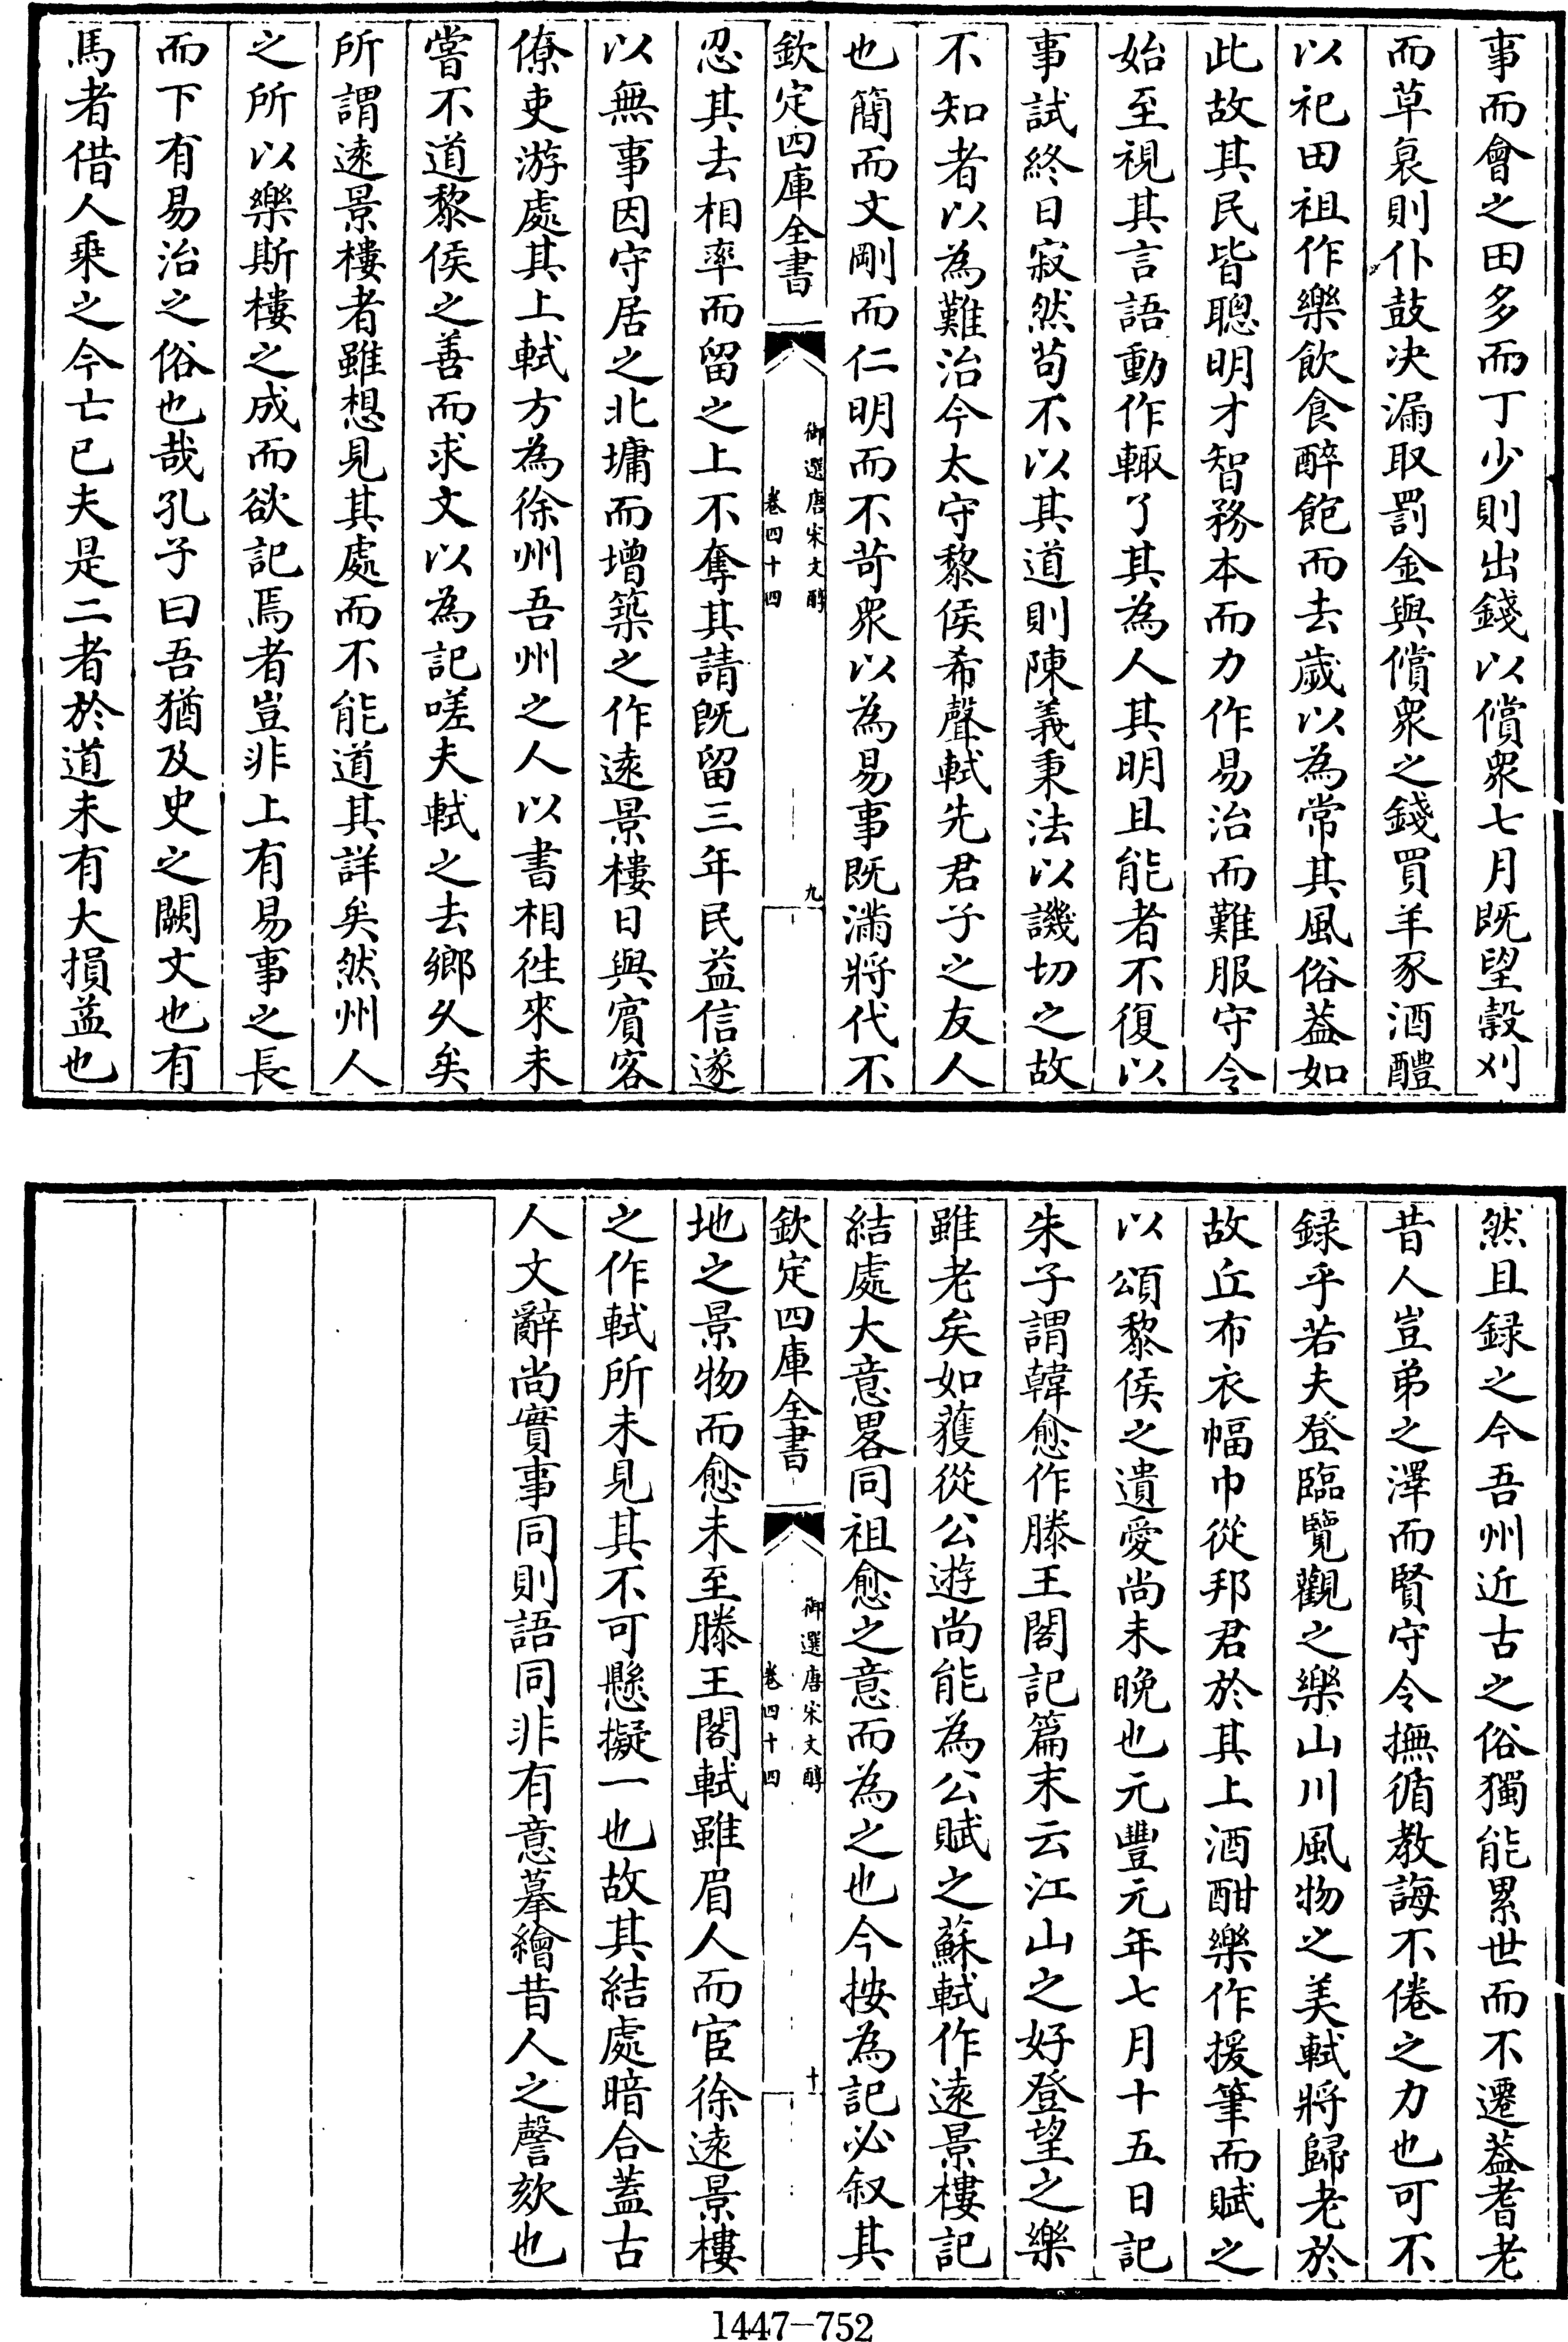 事而會之田多而丁少則出錢以償衆七月既望穀刈
而草衰則仆鼓决漏取罰金與償衆之錢買羊豕酒醴
以祀田祖作樂飲食醉飽而去歲以為常其風俗葢如
此故其民皆聰明才智務本而力作易治而難服守令
始至視其言語動作輙了其為人其明且能者不復以
事試終日寂然茍不以其道則陳義秉法以譏切之故
不知者以為難治今太守黎侯希聲軾先君子之友人
也簡而文剛而仁明而不苛衆以為易事既滿將代不
欽定四庫全書
御選唐宋文醇
卷四十四
九
忍其去相率而留之上不奪其請既留三年民益信遂
以無事因守居之北墉而増築之作遠景樓日與賓客
僚吏游處其上軾方為徐州吾州之人以書相徃來未
嘗不道黎侯之善而求文以為記嗟夫軾之去鄉久矣
所謂遠景樓者雖想見其處而不能道其詳矣然州人
之所以樂斯樓之成而欲記焉者豈非上有易事之長
而下有易治之俗也哉孔子曰吾猶及史之闕文也有
馬者借人乗之今亡已夫是二者於道未有大損益也
然且録之今吾州近古之俗獨能累世而不遷葢耆老
昔人豈弟之澤而賢守令撫循教誨不倦之力也可不
録乎若夫登臨覽觀之樂山川風物之美軾將歸老於
故丘布衣幅巾從邦君於其上酒酣樂作援筆而賦之
以頌黎侯之遺愛尚未晚也元豐元年七月十五日記
朱子謂韓愈作滕王閣記篇末云江山之好登望之樂
雖老矣如獲從公遊尚能為公賦之蘇軾作遠景樓記
結處大意畧同祖愈之意而為之也今按為記必叙其
欽定四庫全書
御選唐宋文醇
卷四十四
十
地之景物而愈未至滕王閣軾雖眉人而宦徐遠景樓
之作軾所未見其不可懸擬一也故其結處暗合蓋古
人文辭尚實事同則語同非有意摹繪昔人之謦欬也
1447-752